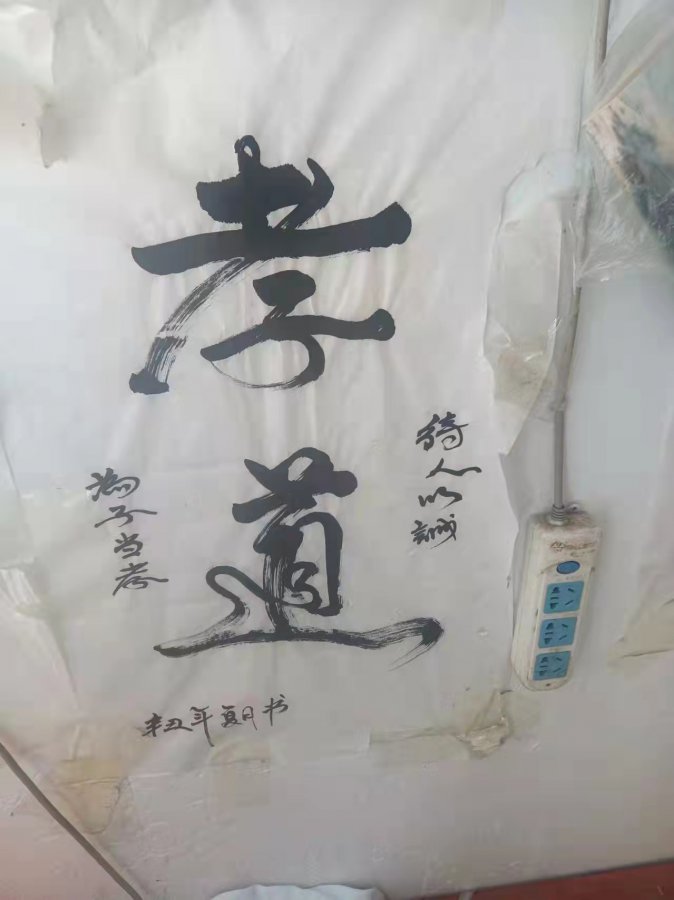 孝
道
待人以誠
為子当孝
辛丑年夏月书